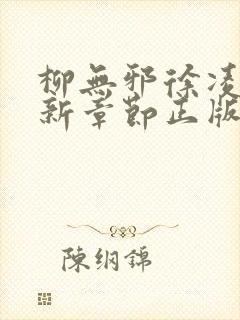 柳無邪徐凌
新章節正版
陳綱錦